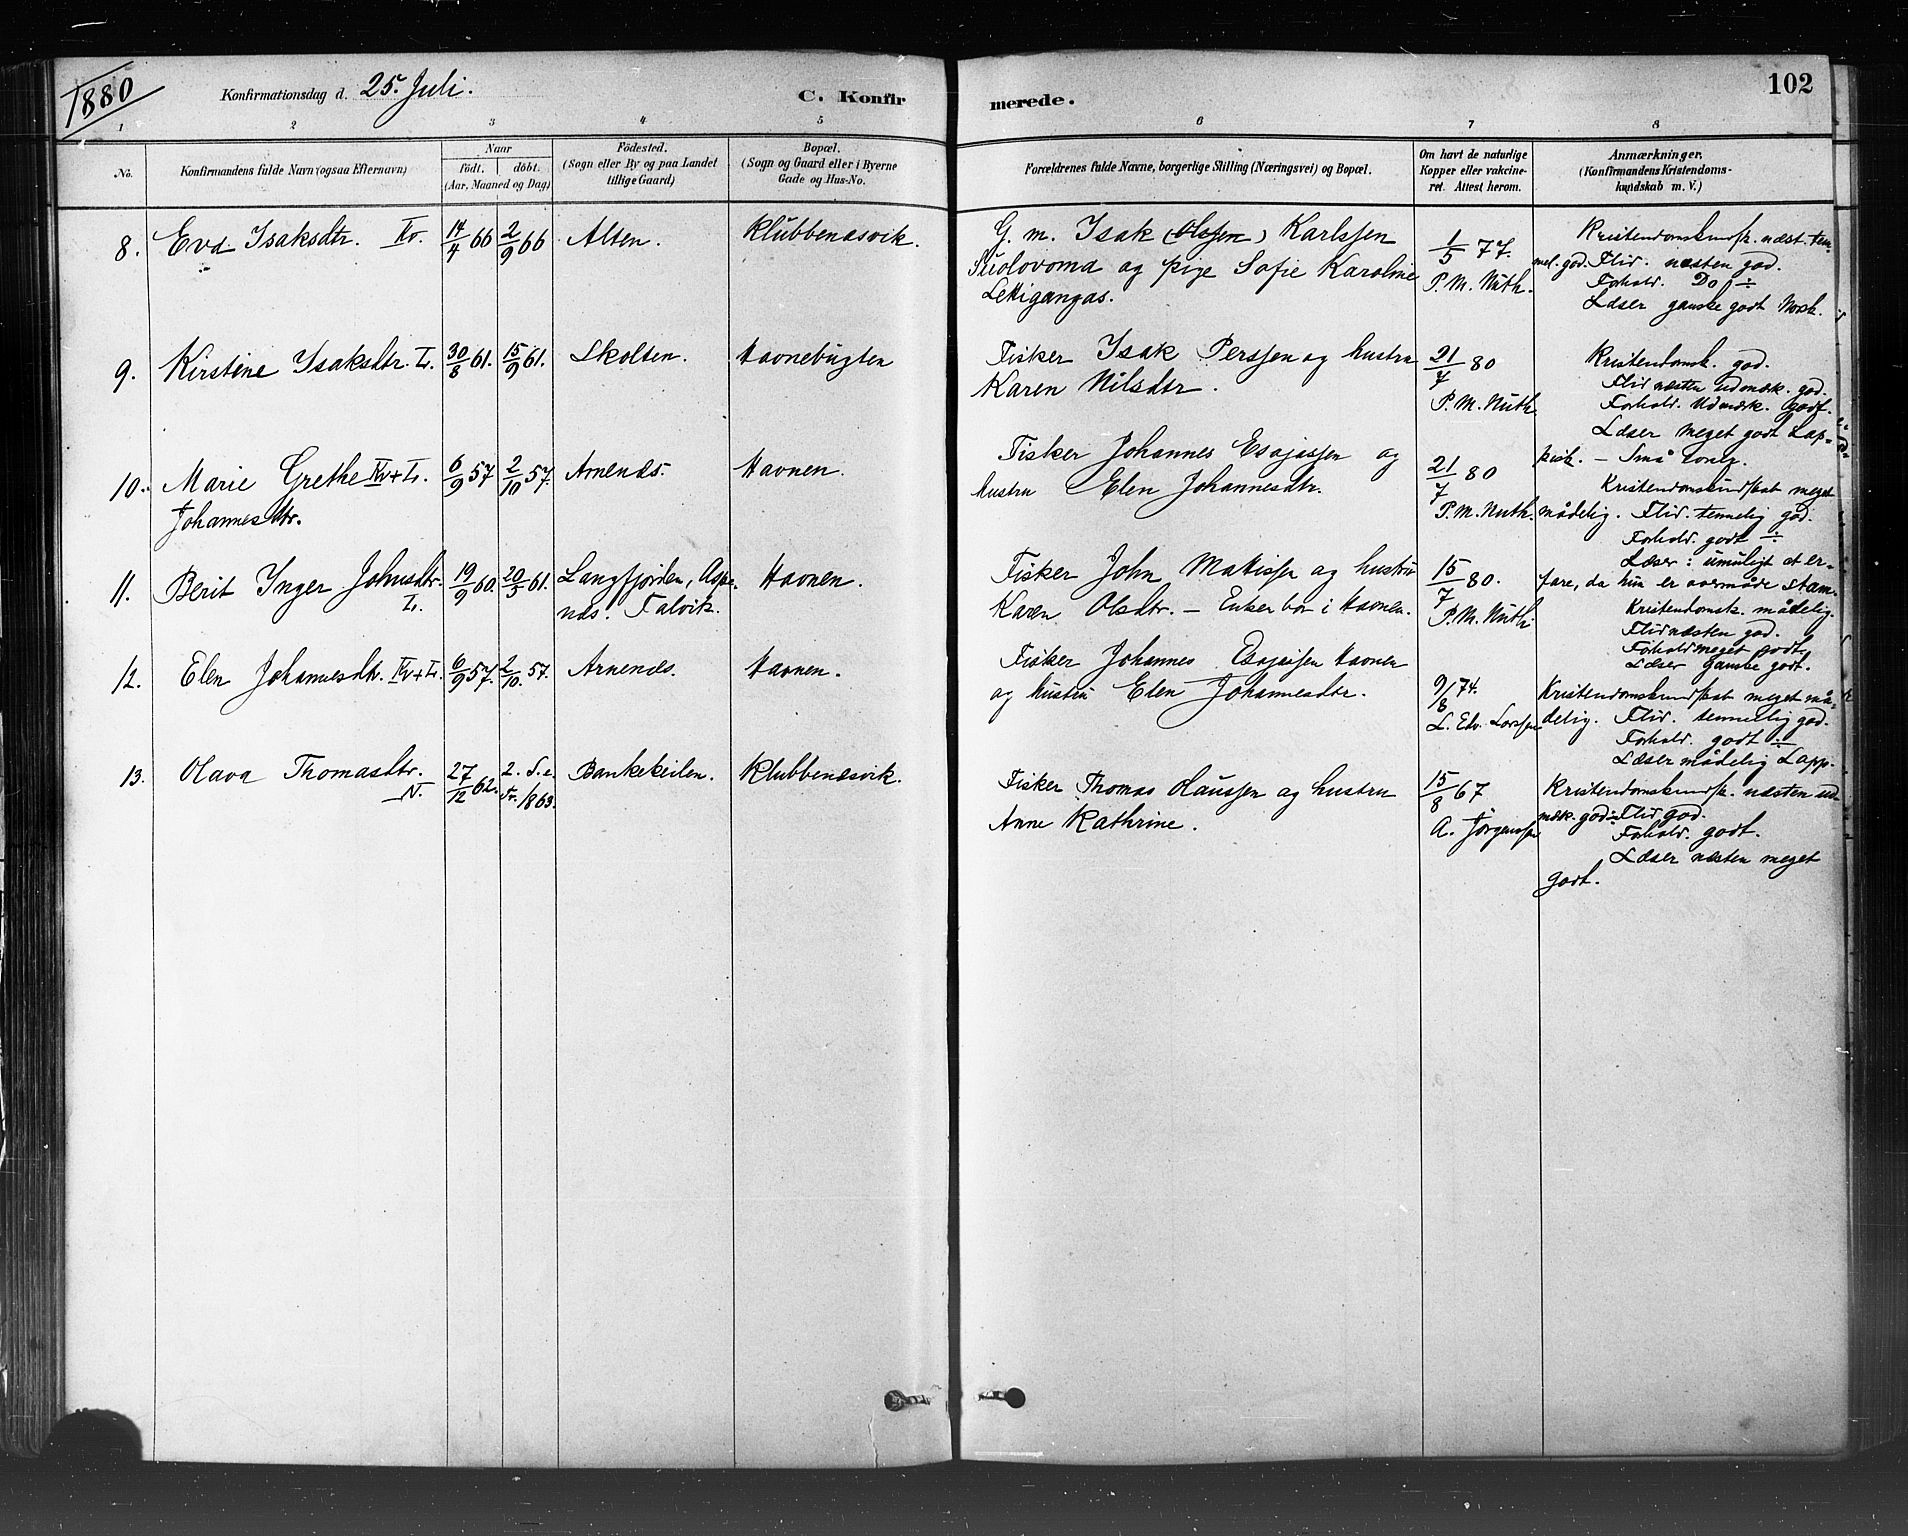 1880
Konfirmationsdag d. 25. Juli.
C. Konfir
merede.
102
1 2 3 4 5 6 7 8
No.
Konfirmandens fulde Navn (ogsaa Efternavn)
Naar
födt. döbt.
(Aar, Maaned og Dag)
Födested.
(Sogn eller By og paa Landet
tillige Gaard)
Bopæl.
(Sogn og Gaard eller i Byerne
Gade og Hus-No.
Forældrenes fulde Navne, borgerlige Stilling (Næringsvei) og Bopæl.
Om havt de naturlige
Kopper eller vakcine-
ret. Attest herom.
Anmærkninger.
(Konfirmandens Kristendoms-
kundskab m. V.)
8. Eva Isaksdtr. Kv. 14/4 66 2/9 66 Alten. Klubbenæsvik.
G. m. Isak (Olsjen) Karlsjen
Suolovoma og pige Sofie Karoline
Lekigangas.
1/5 77.
P. M. Nuth.
Kristendomskundsk. næst. tem-
mel. god. Flid. næsten god.
Forhold. Do ÷
Læser ganske godt Norsk.
9. Kirstine Isaksdtr. L. 30/8 61. 15/9 61. Skolten. Havnebugten
Fisker Isak Perssen og hustru
Karen Nilsdtr.
21/7 80
P. M. Nuth
Kristendomsk. god.
Flid næsten udmærk. god.
Forhold. Udmærk. godt.
Læser meget godt Lap-
pisk.
10. Marie Grethe Kv+L. 6/9 57 2/10 57. Arnenæs. Havnen.
Johannesdtr.
Fisker Johannes Esajassen og
hustru Elen Johannesdtr.
21/7 80
P. M. Nuth.
Kristendomskundskab meget
mådelig. Flid. temmelig god.
Forhold. godt ÷
Læser: umuligt at er-
fare, da hun er
11. Berit Inger Johnsdtr. 19/9 60. 20/5 61. Langfjorden, Aspe- Havnen.
L. næs. Talvik.
Fisker John Mathissen og hustru
Karen Olsdtr. – Enker bor i Havnen.
15/7 80.
P. M. Nuth.
Kristendomsk. mådelig.
Flid næsten god.
Forhold meget godt.
Læser ganske godt.
12. Elen Johannesdtr. Kv+L. 6/9 57. 2/10. 57. Arnenæs. Havnen.
Fisker Johannes Esajassen Havnen
og hustru Elen Johannesdtr.
9/8 74.
L. Edv. Larssen
Kristendomskundskab meget må-
delig. Flid. temmelig god.
Forhold. godt ÷
Læser mådelig Lapp.
13. Olava Thomasdtr. 27/12 62. 2. S. e. Bankekeilen. Klubbenæsvik.
N. Tr. 1863.
Fisker Thomas Olaussen og hustru
Anne Kathrine.
15/8 67
A. Jörgenssen
Kristendomskundsk. næsten ud-
mærk. god ÷ Flid god.
Forhold. godt.
Læser næsten meget
godt.